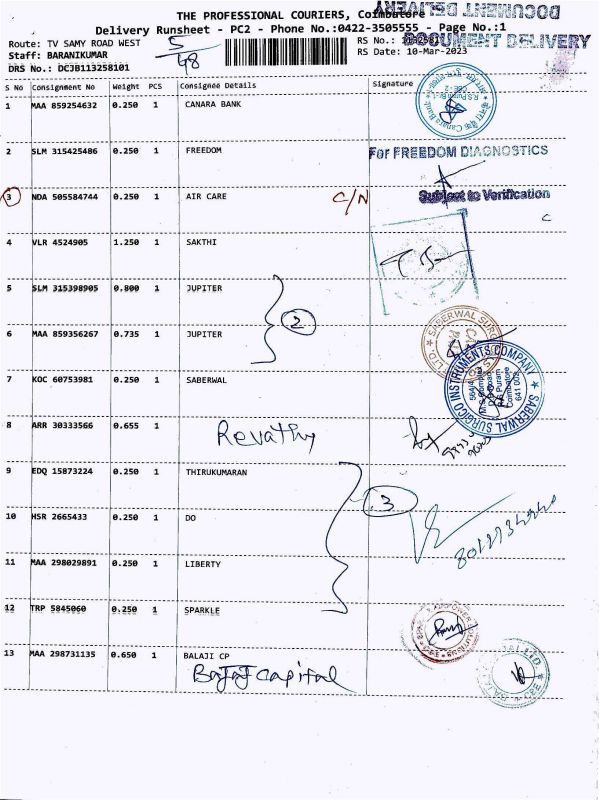 THE PROFESSIONAL COURIERS, Coimbatore
DOCUMENT DELIVERY
Delivery Runsheet - PC2 - Phone No.:0422-3505555 - Page No.:1
DOCUMENT DELIVERY
Route: TV SAMY ROAD WEST
5/48
RS No.:
Staff: BARANIKUMAR
RS Date: 10-Mar-2023
DRS No.: DCJB113258101
S No Consignment No Weight PCS Consignee Details Signature
1 MAA 859254632 0.250 1 CANARA BANK
Canara Bank
2 SLM 315425486 0.250 1 FREEDOM
For FREEDOM DIAGNOSTICS
3 NDA 505584744 0.250 1 AIR CARE C/N
Subject to Verification
4 VLR 4524905 1.250 1 SAKTHI
5 SLM 315398905 0.800 1 JUPITER
2
6 MAA 859356267 0.735 1 JUPITER
SABERWAL SURGI
7 KOC 60753981 0.250 1 SABERWAL
SABERWAL SURGICO INSTRUMENTS COMPANY
R.S Puram
Coimbatore
641 002
8 ARR 30333566 0.655 1 Revathy
9 EDQ 15873224 0.250 1 THIRUKUMARAN
3
10 HSR 2665433 0.250 1 DO
11 MAA 298029891 0.250 1 LIBERTY
12 TRP 5845060 0.250 1 SPARKLE
13 MAA 298731135 0.650 1 BALAJI CP
Bajaj Capital